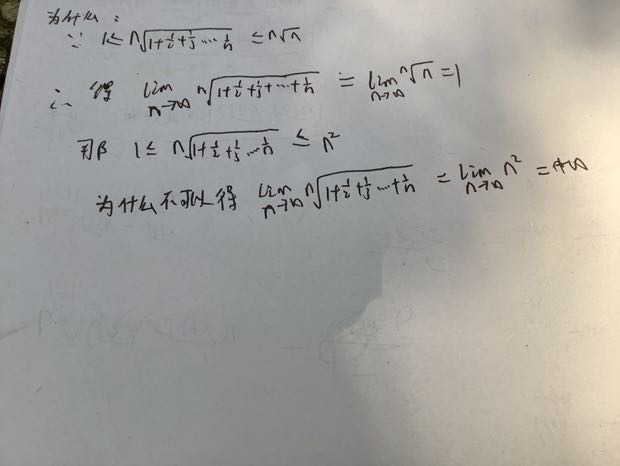 为什么:
∵ 1≤ ⁿ√(1+1/2+1/3+⋯1/n) ≤ ⁿ√n
∴ 得 lim n→∞ ⁿ√(1+1/2+1/3+⋯+1/n) = lim n→∞ ⁿ√n =1
那 1≤ ⁿ√(1+1/2+1/3⋯1/n) ≤ n²
为什么不可以得 lim n→∞ ⁿ√(1+1/2+1/3⋯+1/n) = lim n→∞ n² =+∞